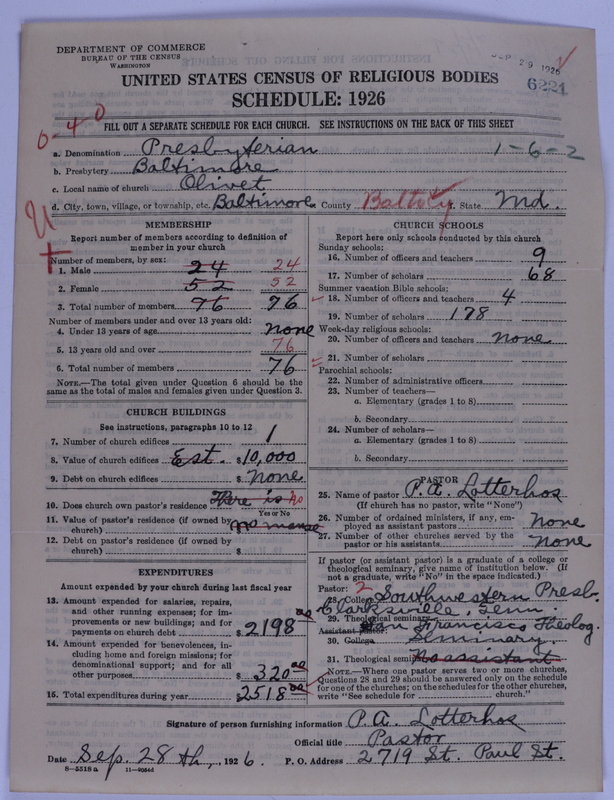 DEPARTMENT OF COMMERCE
BUREAU OF THE CENSUS
WASHINGTON
SEP 29 1926
6221
UNITED STATES CENSUS OF RELIGIOUS BODIES
SCHEDULE: 1926
0-4-0
FILL OUT A SEPARATE SCHEDULE FOR EACH CHURCH. SEE INSTRUCTIONS ON THE BACK OF THIS SHEET
a. Denomination Presbyterian 1-6-2
b. Presbytery Baltimore
c. Local name of church Olivet
d. City, town, village, or township, etc. Baltimore County Balto City State Md.
MEMBERSHIP
Report number of members according to definition of
member in your church
Number of members, by sex:
1. Male 24 24
2. Female 52 52
3. Total number of members 76 76
Number of members under and over 13 years old:
4. Under 13 years of age none
5. 13 years old and over 76
6. Total number of members 76
NOTE.—The total given under Question 6 should be
same as the total of males and females given under Question 3.
CHURCH BUILDINGS
See instructions, paragraphs 10 to 12
7. Number of church edifices 1
8. Value of church edifices Est. $10,000
9. Debt on church edifices $ None
10. Does church own pastor's residence There is no
Yes or No
11. Value of pastor's residence (if owned by
church) no manse
12. Debt on pastor's residence (if owned by
church) $
EXPENDITURES
Amount expended by your church during last fiscal year
13. Amount expended for salaries, repairs,
and other running expenses; for im-
provements or new buildings; and for
payments on church debt $ 2198 00
14. Amount expended for benevolences, in-
cluding home and foreign missions; for
denominational support; and for all
other purposes $ 320 00
15. Total expenditures during year 2518 00
CHURCH SCHOOLS
Report here only schools conducted by this church
Sunday schools:
16. Number of officers and teachers 9
17. Number of scholars 68
Summer vacation Bible schools:
18. Number of officers and teachers 4
19. Number of scholars 178
Week-day religious schools:
20. Number of officers and teachers none
21. Number of scholars
Parochial schools:
22. Number of administrative officers
23. Number of teachers—
a. Elementary (grades 1 to 8)
b. Secondary
24. Number of scholars—
a. Elementary (grades 1 to 8)
b. Secondary
PASTOR
25. Name of pastor P. A. Lotterhos
(If church has no pastor, write "None")
26. Number of ordained ministers, if any, em-
ployed as assistant pastors None
27. Number of other churches served by the
pastor or his assistants None
If pastor (or assistant pastor) is a graduate of a college or
theological seminary, give name of institution below. (If
not a graduate, write "No" in the space indicated.)
Pastor: 2
28. College Southwestern Presb.
Clarksville, Tenn.
29. Theological seminary San Francisco Theolog.
Assistant pastor:
30. College Seminary.
31. Theological seminary No assistant
NOTE.—Where one pastor serves two or more churches,
Questions 28 and 29 should be answered only on the schedule
for one of the churches; on the schedules for the other churches,
write "See schedule for church."
Signature of person furnishing information P. A. Lotterhos
Official title Pastor
Date Sep. 28th, 1926. P. O. Address 2719 St. Paul St.
8—5518a